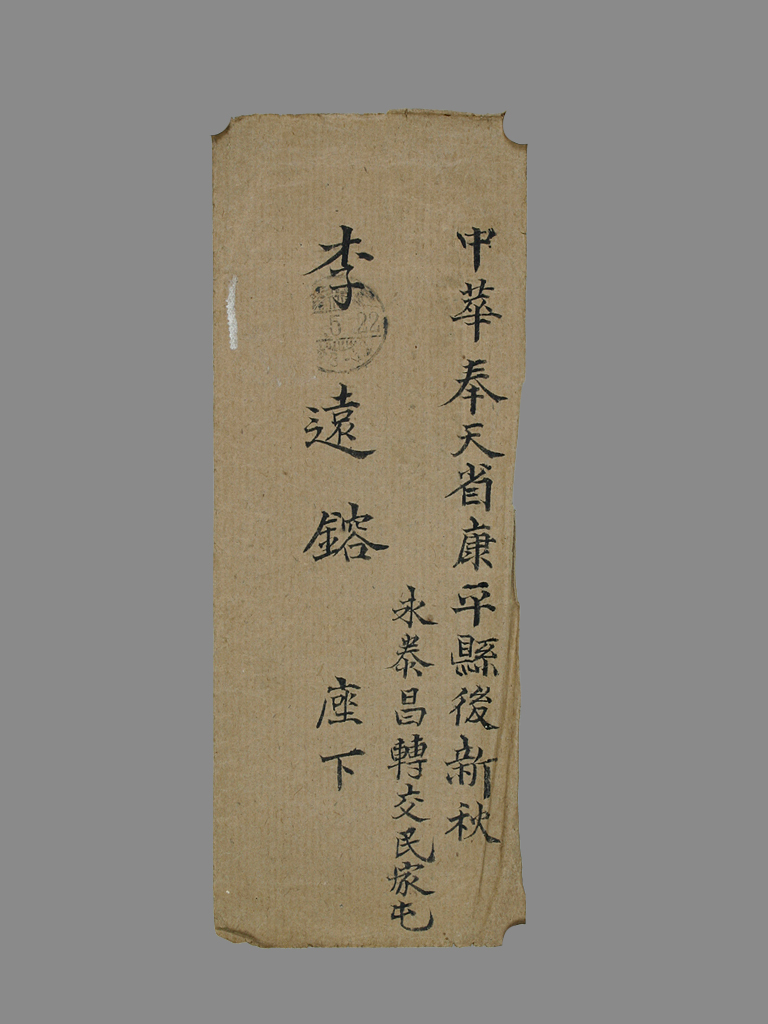 中華奉天省康平縣後新秋
永泰昌轉交民家屯
李遠鎔 座下
5 22